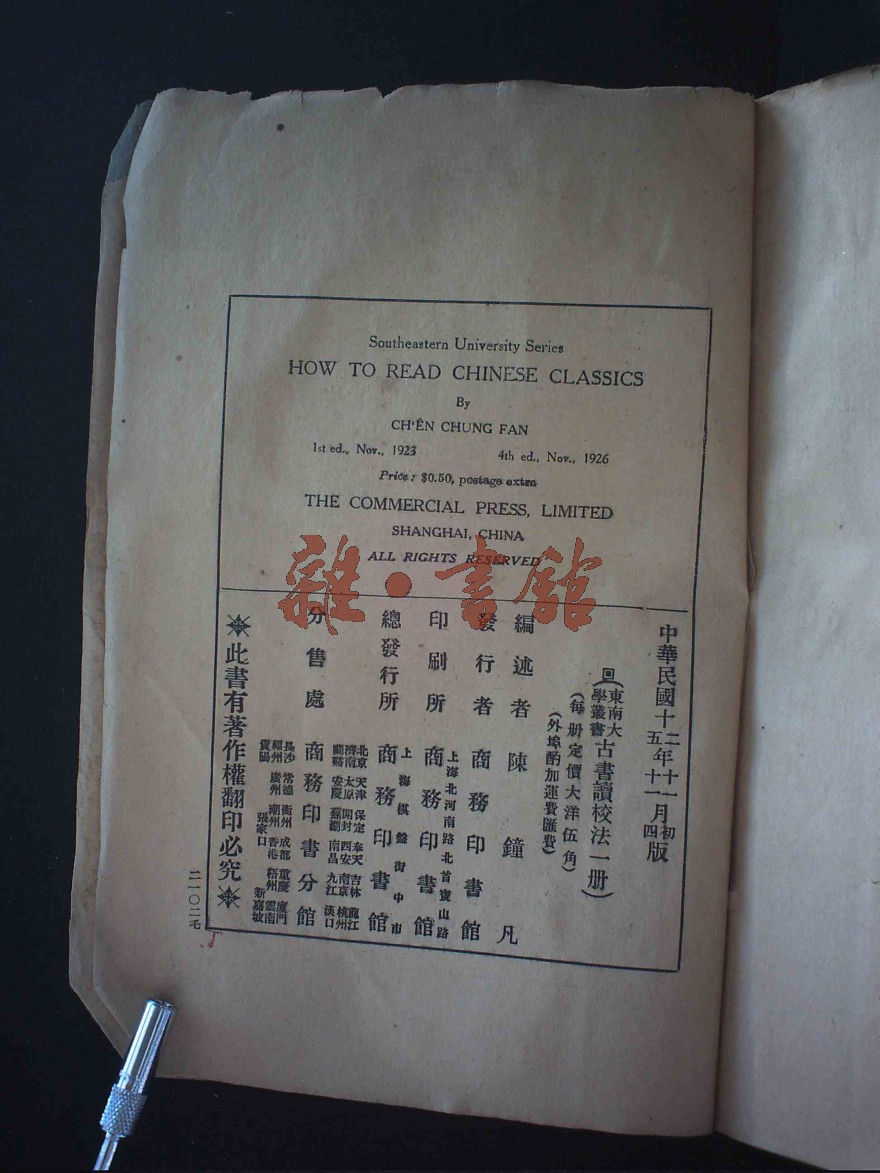 Southeastern University Series
HOW TO READ CHINESE CLASSICS
By
CH'ÊN CHUNG FAN
1st ed., Nov., 1923 4th ed., Nov., 1926
Price: $0.50, postage extra
THE COMMERCIAL PRESS, LIMITED
SHANGHAI, CHINA
ALL RIGHTS RESERVED
雜·書館
中華民國十二年十一月初版
五十一四
回(東南大學叢書)古書讀校法一册)
(每册定價大洋伍角)
(外埠酌加運費匯費)
編述者 陳鐘凡
發行者 商務印書館
印刷所 上海北河南路北首寶山路 商務印書館
總發行所 上海棋盤街中市 商務印書館
分售處 商務印書分館
北京 天津 保定 奉天 吉林 龍江
濟南 太原 開封 西安 南京 杭州
蘭谿 安慶 蕪湖 南昌 九江 漢口
長沙 常德 衡州 成都 重慶 廈門
福州 廣州 潮州 香港 梧州 雲南
貴陽 張家口 新嘉坡
此書有著作權翻印必究
二一〇二毛